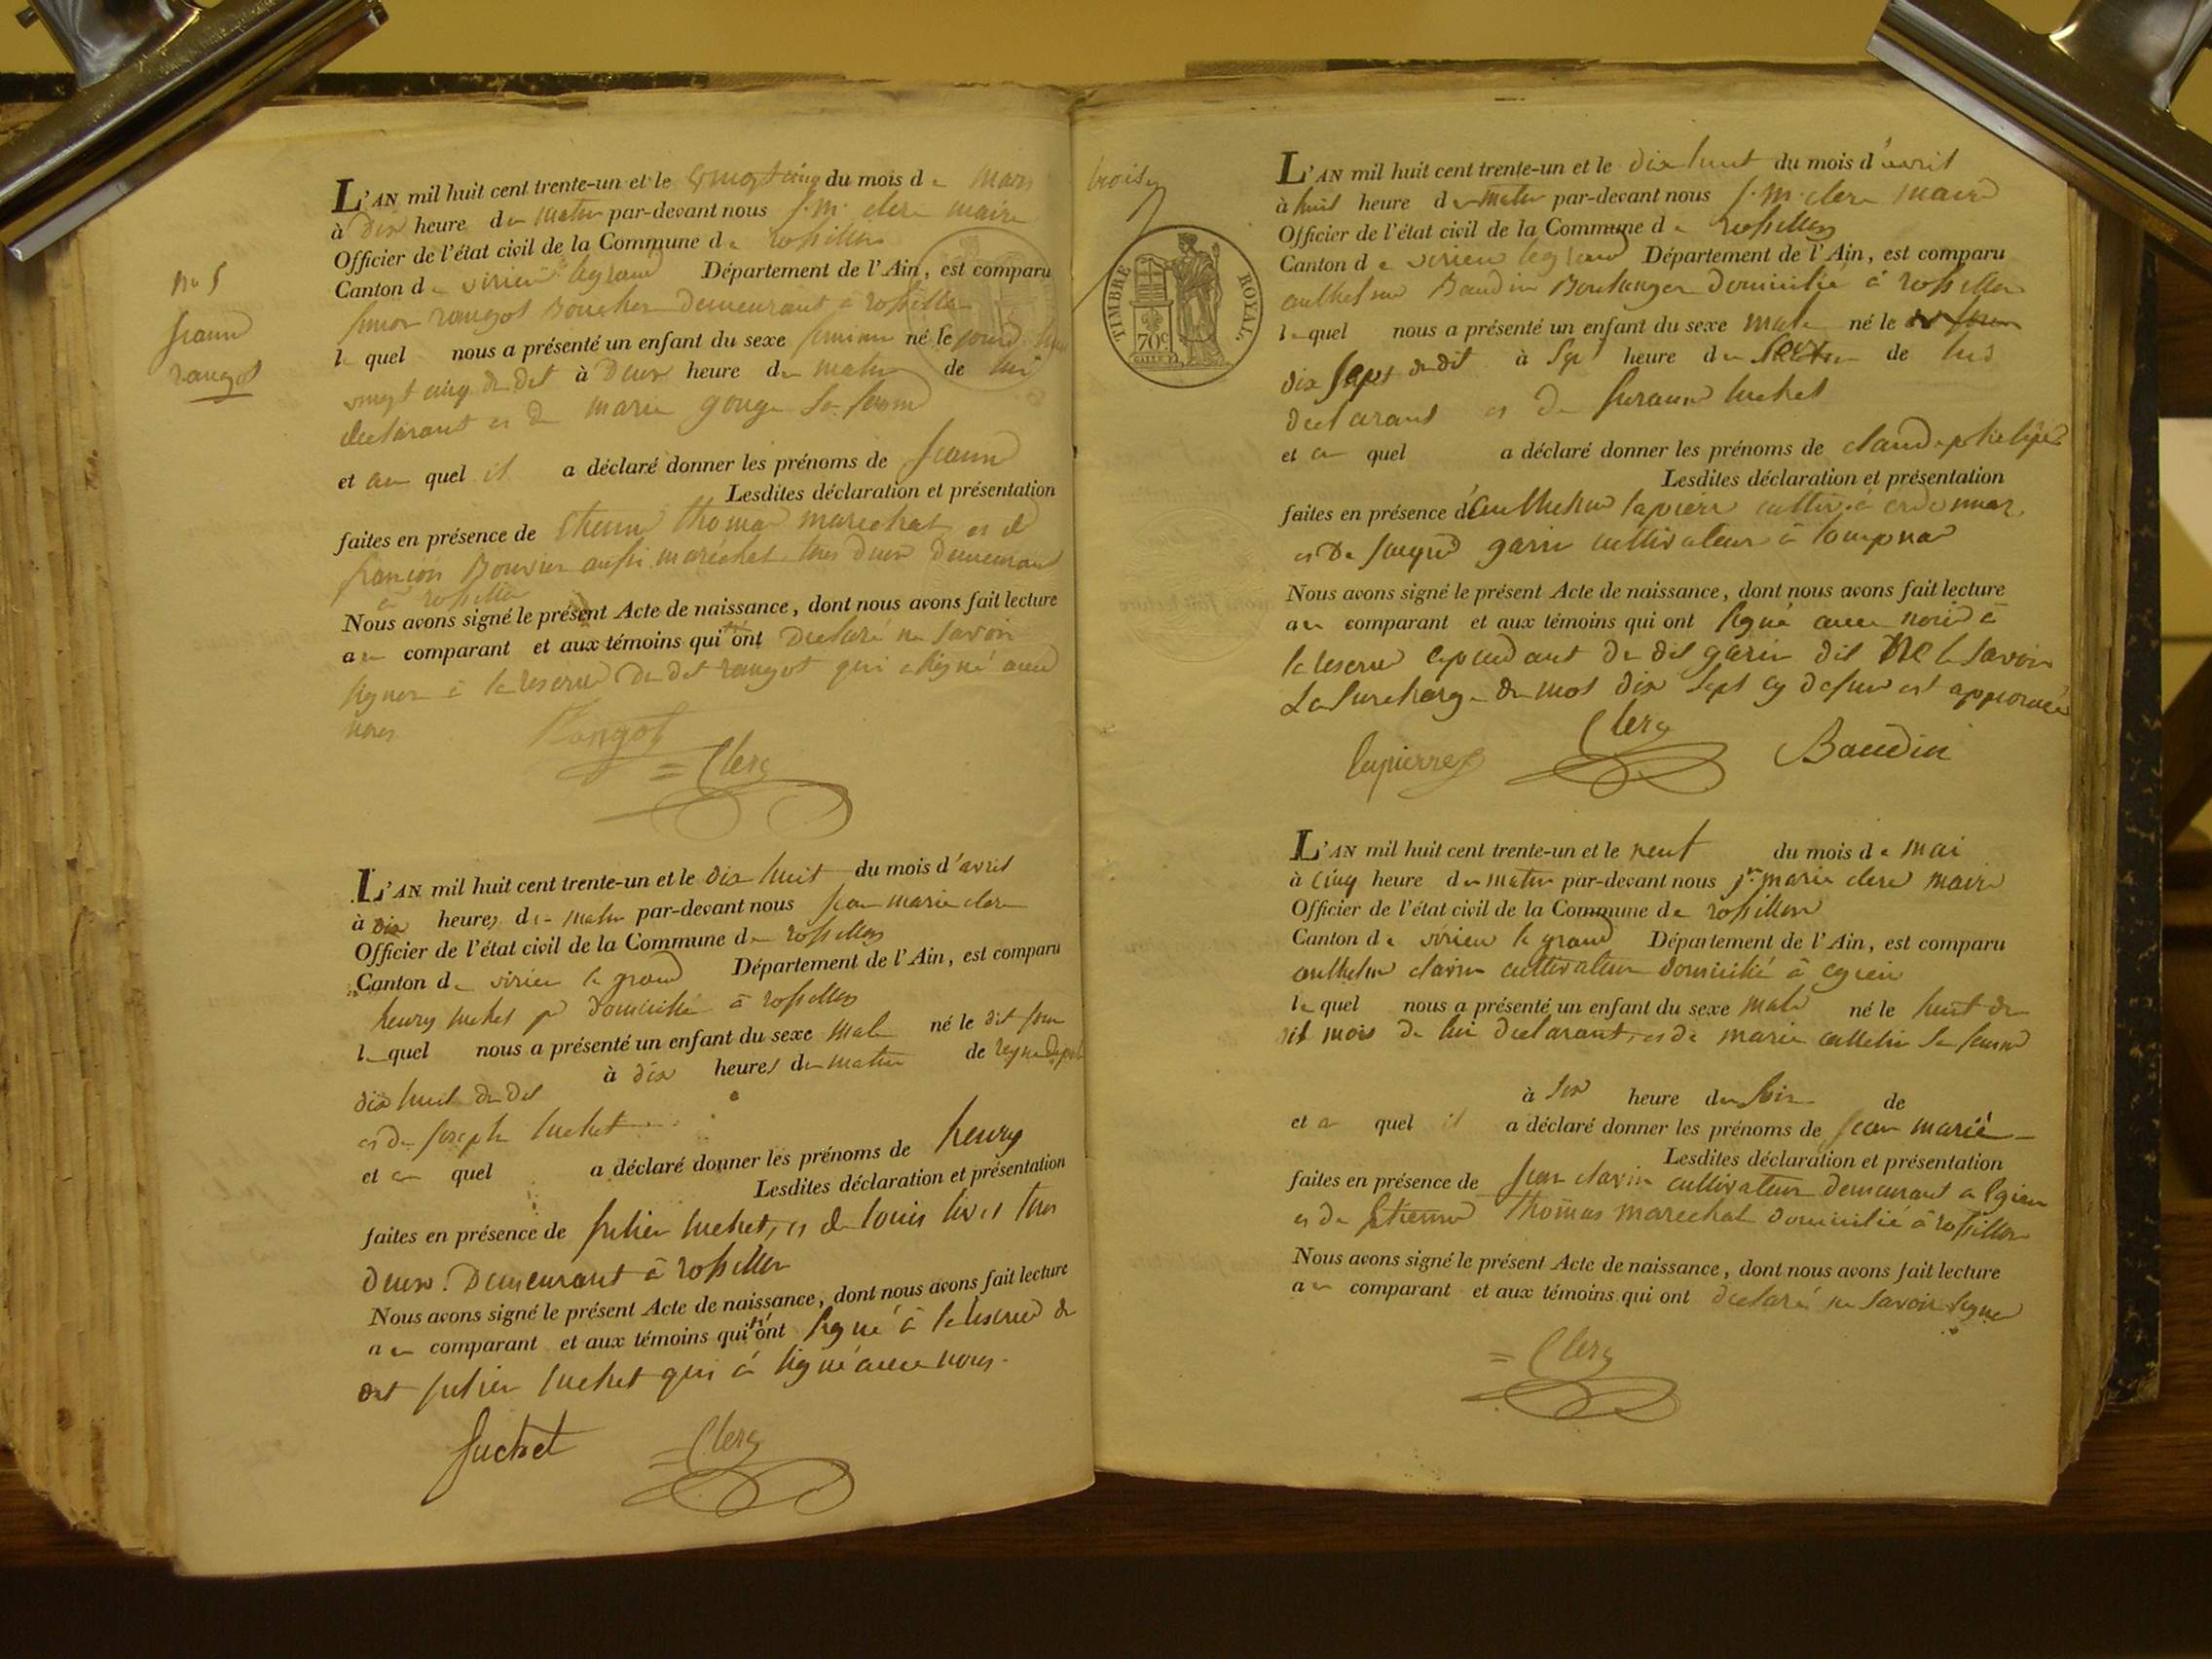 no 5
jeanne
rangot
L'AN mil huit cent trente-un et le vingt cinq du mois de mars
à dix heure du matin par-devant nous j. m. clerc maire
Officier de l'état civil de la Commune de rossillon
Canton de virieu le grand Département de l'Ain, est comparu
rangot Boucher demeurant à rossillon
le quel nous a présenté un enfant du sexe né le
vingt cinq du dit à Deux heure du matin de lui
declarant et de marie gouge sa femme
et au quel il a déclaré donner les prénoms de jeanne
Lesdites déclaration et présentation
faites en présence de Etienne thomas marechal et de
françois Bouvier aussi maréchal tous deux Demeurant
à rossillon
Nous avons signé le présent Acte de naissance, dont nous avons fait lecture
au comparant et aux témoins qui ont Declaré ne savoir
signer à la reserve Du dit rangot qui a signé avec
nous
Rangot
Clerc
L'AN mil huit cent trente-un et le dix huit du mois d'avril
à dix heures du matin par-devant nous jean marie clerc
Officier de l'état civil de la Commune de rossillon
Canton de virieu le grand Département de l'Ain, est comparu
henry suchet domicilié à rossillon
le quel nous a présenté un enfant du sexe male né le dit jour
dix huit du dit à dix heures du matin de
et de joseph suchet
et au quel a déclaré donner les prénoms de henry
Lesdites déclaration et présentation
faites en présence de julien suchet, et de louis tous
deux Demeurant à rossillon
Nous avons signé le présent Acte de naissance, dont nous avons fait lecture
au comparant et aux témoins qui ont signé à la reserve de
julien suchet qui à signé avec nous.
Suchet
Clerc
TIMBRE ROYAL
70c
L'AN mil huit cent trente-un et le dix huit du mois d'avril
à huit heure du matin par-devant nous j. m. clerc maire
Officier de l'état civil de la Commune de rossillon
Canton de virieu le grand Département de l'Ain, est comparu
anthelme Baudin Boulanger domicilié à rossillon
le quel nous a présenté un enfant du sexe male né le
dix sept du dit à sept heure du de lui
declarant et de suchet
et au quel a déclaré donner les prénoms de claude philipe
Lesdites déclaration et présentation
faites en présence d'anthelme lapierre cultiv. à ordonnaz
et de jaque garin cultivateur à
Nous avons signé le présent Acte de naissance, dont nous avons fait lecture
au comparant et aux témoins qui ont signé avec nous à
la reserve cependant du dit garin dit ne le savoir
La surcharge du mot dix sept cy dessus est approuvée
lapierre
Clerc
Baudin
L'AN mil huit cent trente-un et le neuf du mois de mai
à cinq heure du matin par-devant nous jn marie clerc maire
Officier de l'état civil de la Commune de rossillon
Canton de virieu le grand Département de l'Ain, est comparu
anthelme clavin cultivateur domicilié à
le quel nous a présenté un enfant du sexe male né le huit du
dit mois de lui declarant, et de marie sa femme
à six heure du soir de
et au quel il a déclaré donner les prénoms de jean marie
Lesdites déclaration et présentation
faites en présence de jean clavin cultivateur demeurant a
et de Etienne thomas marechal domicilié à rossillon
Nous avons signé le présent Acte de naissance, dont nous avons fait lecture
au comparant et aux témoins qui ont declaré ne savoir signer
Clerc